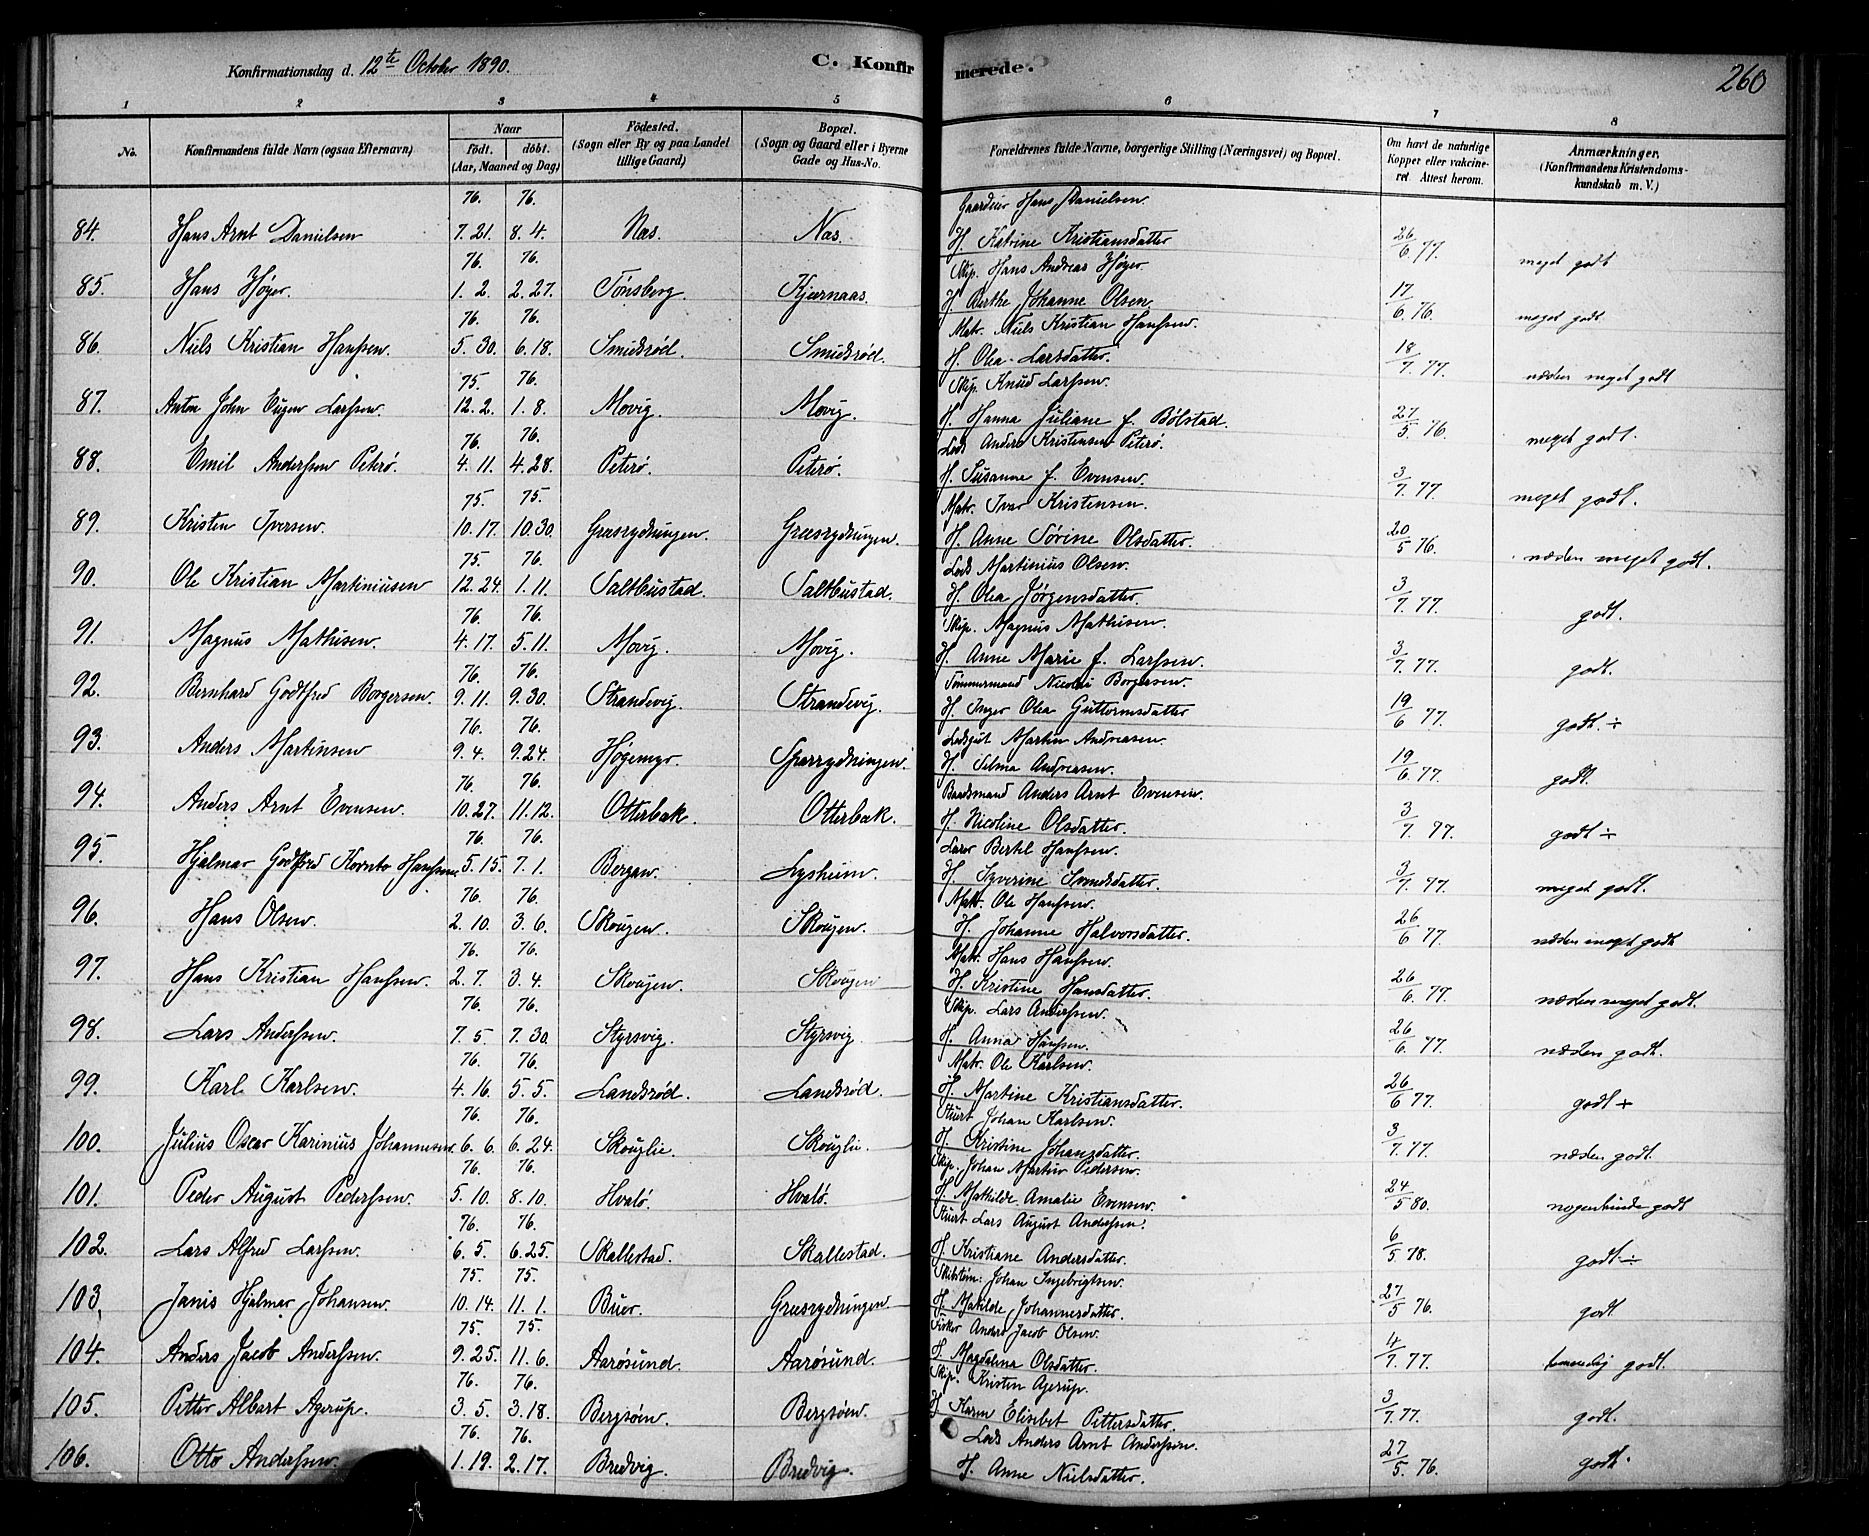 Konfirmationsdag d. 12te October 1890.
C. Konfirmerede.
260
1 2 3 4 5 6 7 8
No.
Konfirmandens fulde Navn (ogsaa Efternavn)
Naar
födt. döbt.
(Aar, Maaned og Dag)
Födested.
(Sogn eller By og paa Landet
tillige Gaard)
Bopæl.
(Sogn og Gaard eller i Byerne
Gade og Hus-No.
Forældrenes fulde Navne, borgerlige Stilling (Næringsvei) og Bopæl.
Om havt de naturlige
Kopper eller vakcine-
ret. Attest herom.
Anmærkninger.
(Konfirmandens Kristendoms-
kundskab m. V.)
76. 76. Gaardeier Hans Danielsen
84. Hans Arnt Danielsen 7. 21. 8. 4. Næs. Næs. H. Katrine Kristiansdatter 26/6 77. meget godt
76. 76. Skip. Hans Andreas Høyer
85. Hans Høyer. 1. 2. 2. 27. Tönsberg. Kjærnaas. H. Berthe Johanne Olsen 17/6 76. meget godt
76. 76. Matr. Niels Kristian Hanssen.
86. Niels Kristian Hanssen. 5. 30. 6. 18. Smidsrød. Smidsrød. H. Olea Larsdatter. 18/7 77. næsten meget godt
75. 76. Skip. Knud Larssen.
87. Anton John Eugen Larssen. 12. 2. 1. 8. Movig. Movig. H. Hanna Juliane f. Bølstad. 27/5 76. meget godt.
76. 76. Lods Anders Kristensen Peterø.
88. Emil Anderssen Peterø. 4. 11. 4. 28. Peterø. Peterø. H. Susanne f. Evensen. 3/7 77. meget godt.
75. 75. Matr. Ivar Kristensen.
89. Kristen Iversen. 10. 17. 10. 30. Græsrydningen. Græsrydningen. H. Anne Sørine Olsdatter. 20/5 76. næsten meget godt.
75. 76. Lods Martinius Olsen.
90. Ole Kristian Martiniusen 12. 24. 1. 11. Saltbustad. Saltbustad. H. Olea Jørgensdatter. 3/7 77. godt.
76. 76. Skip. Magnus Mathisen.
91. Magnus Mathisen. 4. 17. 5. 11. Movig. Movig. H. Anne Marie f. Larssen. 3/7 77. godt.
76. 76. Tömmermand Nicolai Borgersen.
92. Bernhard Godtfred Borgersen. 9. 11. 9. 30. Strandevig. Strandevig. H. Inger Olea Guttormsdatter 19/6 77. godt. ÷
76. 76. Martin Andreasen.
93. Anders Martinsen 9. 4. 9. 24. Høgemyr. Sparrydningen. H. Selma Andreasen. 19/6 77. godt.
76. 76. Baadsmand Anders Arnt Evensen.
94. Anders Arnt Evensen. 10. 27. 11. 12. Otterbæk. Otterbæk. H. Nicoline Olsdatter. 3/7 77. godt ÷
76. 76. Lærer Bertel Hanssen.
95. Hjalmar Godtfred Hanssen. 5. 15. 7. 1. Bergan. Lysheim. H. Syverine 3/7 77. meget godt.
76. 76. Matr. Ole Hanssen.
96. Hans Olsen. 2. 10. 3. 6. Skougen. Skougen. H. Johanne Halvorsdatter. 26/6 77. næsten meget godt
76. 76. Matr. Hans Hanssen.
97. Hans Kristian Hanssen. 2. 7. 3. 4. Skougen. Skougen H. Kristine Hansdatter. 26/6 77. næsten meget godt.
76. 76. Skip. Lars Anderssen.
98. Lars Anderssen. 7. 5. 7. 30. Styrsvig. Styrsvig. H. Anna Hanssen. 26/6 77. næsten godt.
76. 76. Matr. Ole Karlsen.
99. Karl Karlsen. 4. 16. 5. 5. Landsrød. Landsrød. H. Martine Kristiansdatter. 26/6 77. godt ÷
76. 76. Stuert Johan Karlsen.
100. Julius Oscar Karinius Johannesen. 6. 6. 6. 24. Skouglie. Skouglie. H. Kristine Johansdatter. 3/7 77. næsten godt.
76. 76. Skip. Johan Martin Pedersen.
101. Peder August Pederssen. 5. 10. 8. 10. Hvalö. Hvalö. H. Mathilde Amalie Evensen. 24/5 80. nogenlunde godt
76. 76. Stuert Lars August Anderssen.
102. Lars Alfred Larssen. 6. 5. 6. 25. Skallestad. Skallestad. H. Kristiane Andersdatter. 6/5 78. godt ÷
75. 75. Skibstöm. Johan Ingebrigtsen
103. Janis Hjalmar Johansen. 10. 14. 11. 1. Buer. Græsrydningen H. Matilde Johannesdatter. 27/5 76. godt
75. 75. Fisker Anders Jacob Olsen.
104. Anders Jacob Anderssen. 9. 25. 11. 6. Aarøsund. Aarøsund. H. Magdalena Olsdatter. 4/7 77. godt.
76. 76. Skip. Kristen Agerup.
105. Petter Albert Agerup. 3. 5. 3. 18. Bergsöen. Bergsöen. H. Karen Elisebet Pettersdatter. 3/7 77. godt.
76. 76. Lods Anders Arnt Anderssen.
106. Otto Anderssen. 1. 19. 2. 17. Bredvig. Bredvig. H. Anne Nielsdatter. 27/5 76. godt.